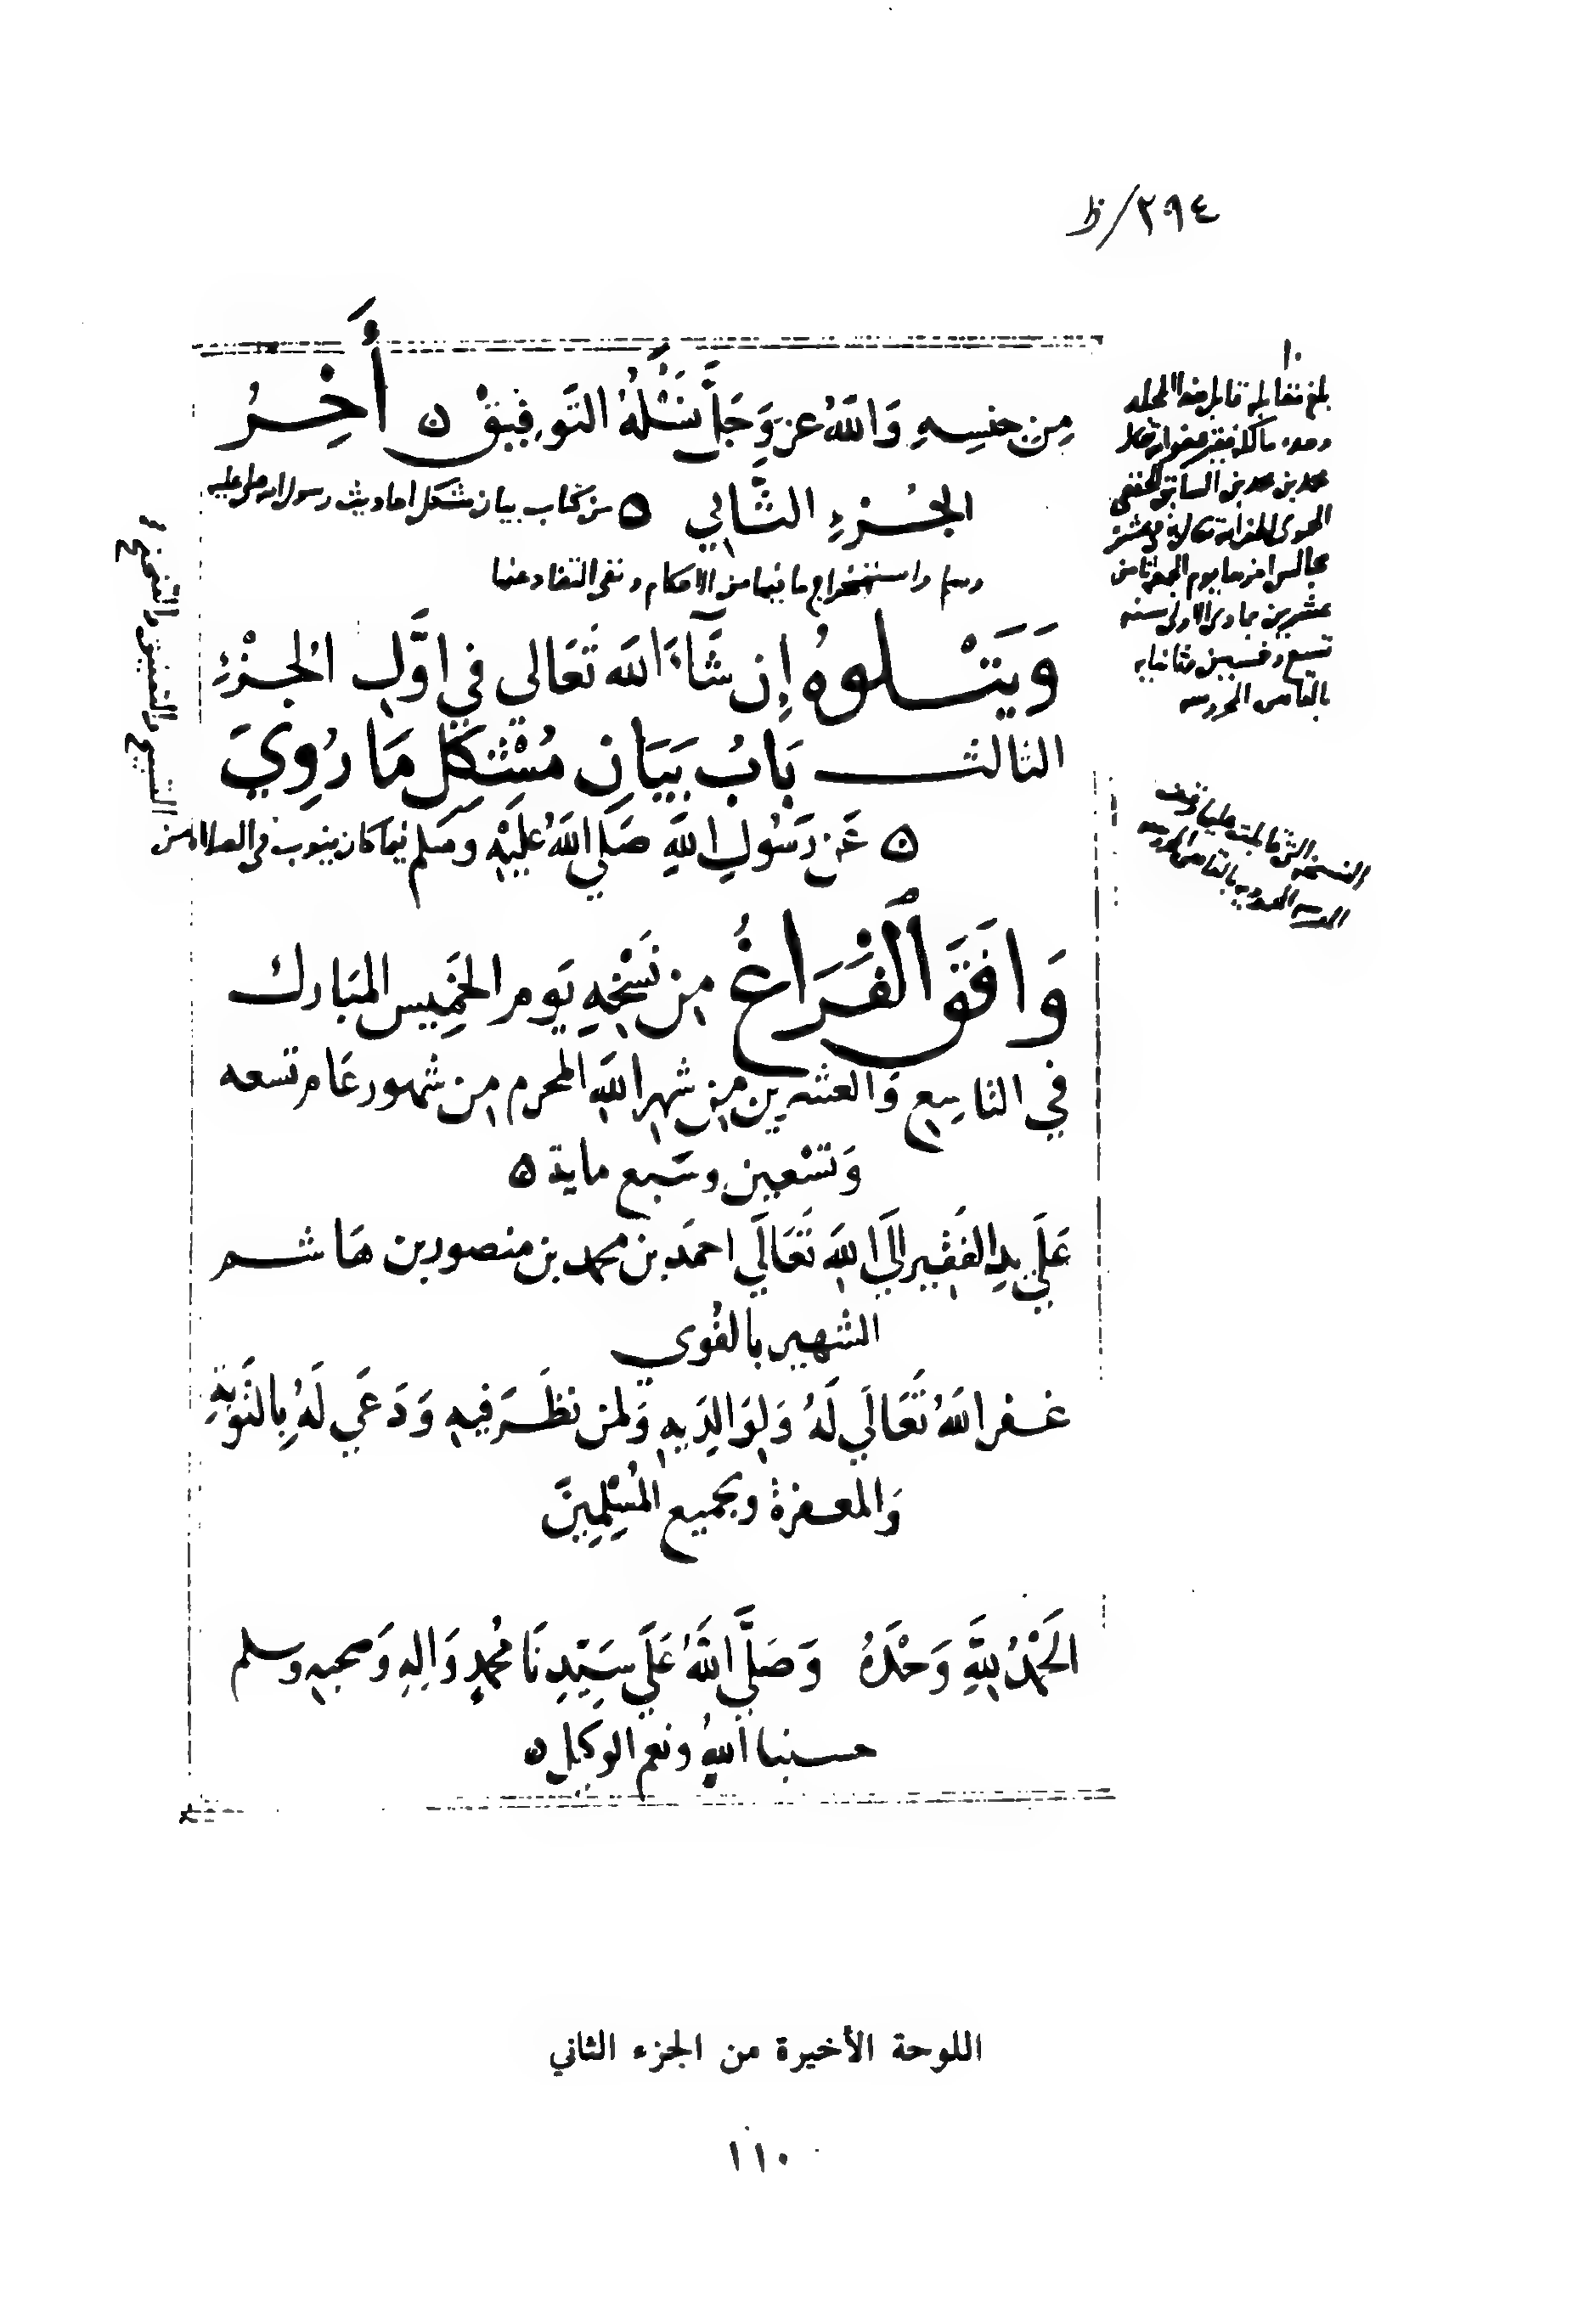 ٢٩٤/ظ
مِن جنسِهِ وَاللهُ عزَ وَجَلَّ نَسْئَلُهُ التَوفيقْ ٥ أَخِرُ
الجُزءِ الثَّانِي ٥ من كتاب بيان مشكل احاديث رسول الله صلى عليه
وسلم واستخراج ما فيها من الاحكام ونفى التضاد عنها
وَيَتْلوهُ إِن شَآءَ اللهَ تَعَالى في اوَّلِ الجُزْءِ
الثالث بَابُ بَيَانِ مُشْكِلِ مَا رُوِيَ
٥ عَن رَسُولِ اللهِ صَلي اللهُ عَلَيْهِ وسَلم فيما كان ينوب في الصلاة من
التسبيح والتصفيق والتنحنح
وَافَقَ الْفَرَاغُ مِن نَسْخِهِ يَوم الخَمِيس المبَارك
في التاسِع وَالعشرين مِن شَهرِ اللهِ المحرم مِن شهور عَام تسعه
وَتسْعين وسَبع ماية ٥
عَلَي يدِ الفَقِير إلَي اللهِ تَعَالَي احمَد بن محمد بن منصور بن هَاشم
الشهير بالقوي
غفر اللهُ تَعَالَي لَهُ وَلِوَالِدَيهِ وَلمن نظَرَ فيهِ وَدَعَي لَهُ بِالتَوبَةِ
وَالمغفرة وبجميع المُسْلِمِينَ
الحَمْدُ للهِ وَحْدَهُ وَصَلَّي اللهُ عَلَي سَيّدِنَا مُحمدٍ وَالِهِ وَصحبِهِ وسلم
حسبنا اللهُ ونعم الوكيل ٥
بلغ مقابلة قابل هذا المجلد
محمد بن محمد بن السابق الحنفي
الحموي
مجالس اخرها يوم الجمعة ثامن
عشرين جمادى الاولى سنة
تسع وخمسين وثمانمايه
بالقاهرة المحروسه
النسخة التي قابلت عليها وقف
بالقاهرة المحروسه
اللوحة الأخيرة من الجزء الثاني
١١٠